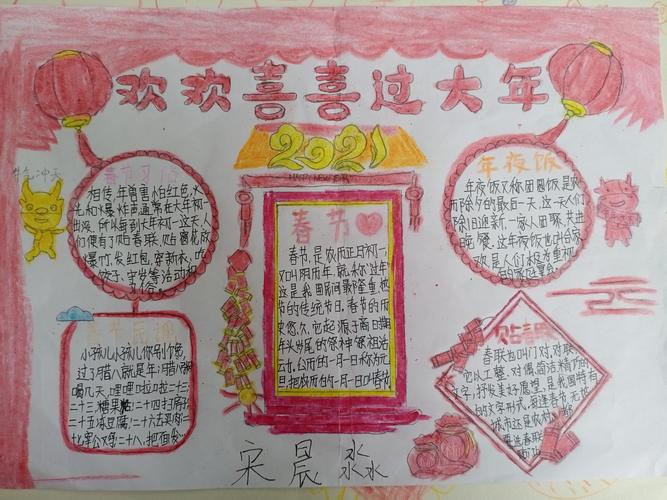 欢欢喜喜过大年
2021
HAPPY NEW YEAR
牛气冲天
春节习俗
相传,年兽害怕红色,火
光和爆炸声,通常在大年初一
出没,所以每到大年初一这天,人
们便有了贴春联、贴窗花、放
爆竹、发红包、穿新衣、吃
饺子、守岁等活动和
习俗
春节
春节,是农历正月初一,
又叫阴历年,就称“过年”
这是我国民间最隆重、最热
节的传统节日。春节的历史
悠久,它起源于商日期
年头岁尾的祭神祭祖活
公历的一月一日称为元
旦,把农历的一月一日叫春节
年夜饭
年夜饭又称团圆饭是农
历除夕的最后一天,这一天人们
除旧迎新,一家人团聚,共进
晚餐。这年夜饭也叫合家
欢,是人们极为重视
的家庭宴会
春节民谣
小孩儿小孩儿你别馋,
过了腊八就是年:腊八粥
喝几天,哩哩啦啦二十三;
二十三,糖果粘;二十四扫房
二十五冻豆腐;二十六去买肉;二
十七宰公鸡;二十八,把面发
贴春联
春联也叫门对、对联
它以工整、对偶、简洁、精巧的
文字,抒发美好愿望,是我国特有
的文字形式。每逢春节,无论
城市还是农村
要选春联
宋晨淼